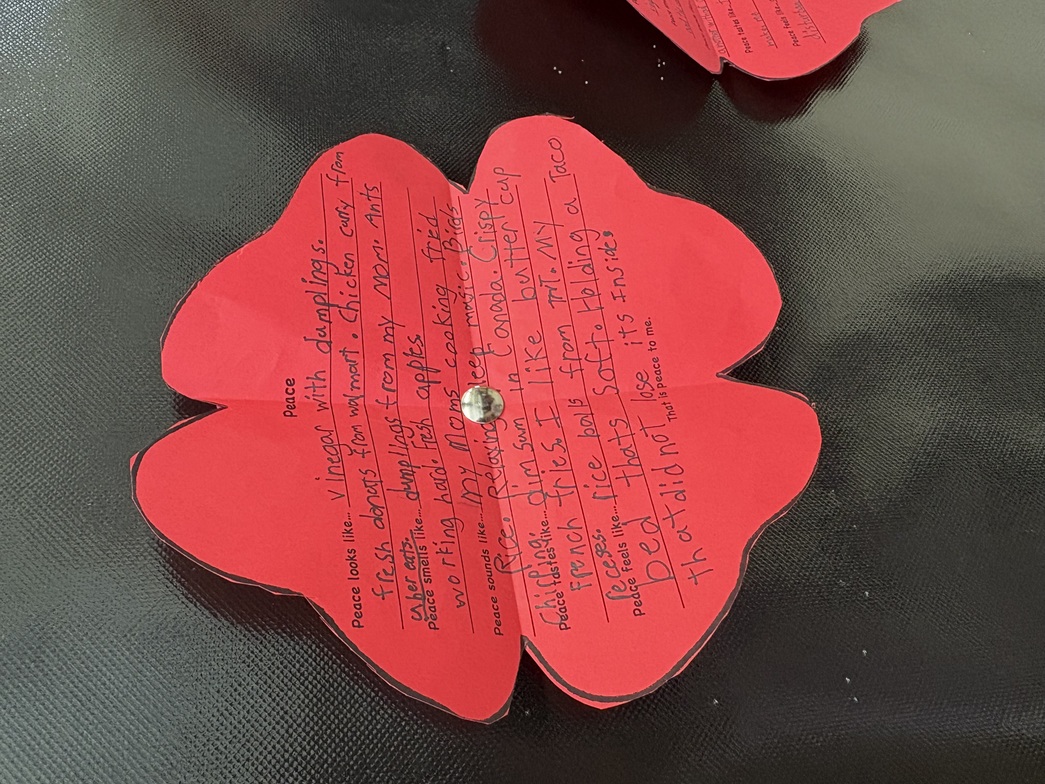 Peace
Peace looks like... vinegar with dumplings.
fresh donats from walmart. Chicken curry from
uber eats.
Peace smells like... dumplings from my mom. Ants
working hard. fresh apples
Peace sounds like... my moms cooking fried
Rice. Relaxing sleep magic. Birds
Chirping.
Peace tastes like... dim sum in Canada. Crispy
French fries. I like butter cup
peceses. rice balls from TNT. My
Peace feels like...
bed thats soft. Holding a Taco
that did not lose its insides
That is peace to me.
Peace tastes like...
Peace feels like...